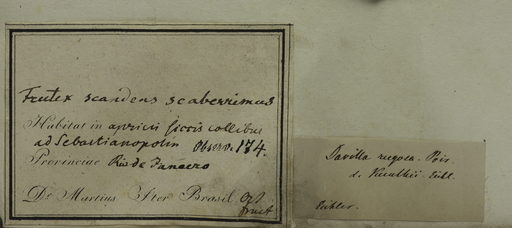 Frutex scandens scaberrimus
Habitat in apricis siccis collibus
ad Sebastianopolin Observ. 174.
Provinciae Rio de Janaero
Dr. Martius Iter Brasil. Oct
fruct
Davilla rugosa. Poir.
d. Kunthii. Eichl.
Eichler.